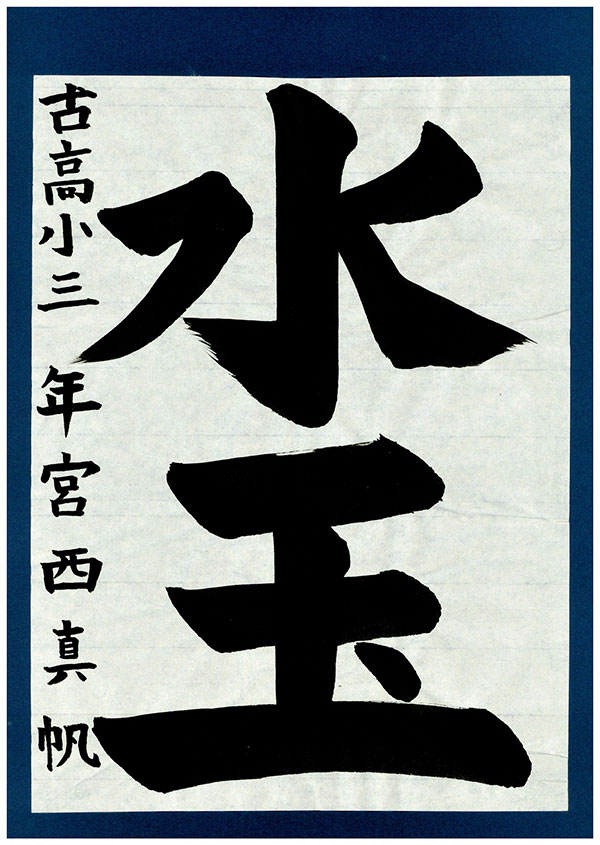 水玉
古高小三年宮西真帆